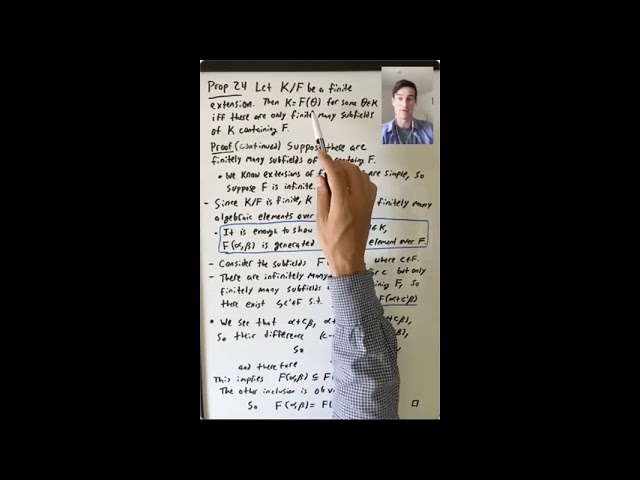 Prop 24 Let K/F be a finite
extension. Then K=F(θ) for some θ∈K
iff there are only finitely many subfields
of K containing F.
Proof (continued) Suppose there are
finitely many subfields of containing F.
• We know extensions of are simple, so
suppose F is infinite.
- Since K/F is finite, K finitely many
algebraic elements over
• It is enough to show ∈K,
F(α,β) is generated element over F.
- Consider the subfields F where c∈F.
- There are infinitely many for c but only
finitely many subfields containing F, so
there exist c,c'∈F s.t. F(α+c'β)
• We see that α+cβ,
so their difference (c-
so
and therefore
This implies F(α,β) ⊆ F(
The other inclusion is
So F(α,β) = F( □